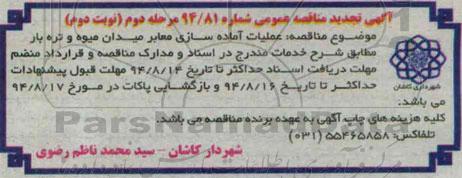 آگهی تجدید مناقصه عمومی شماره ۹۴/۸۱ مرحله دوم (نوبت دوم)
موضوع مناقصه: عملیات آماده سازی معابر میدان میوه و تره بار
مطابق شرح خدمات مندرج در اسناد و مدارک مناقصه و قرارداد منضم
مهلت دریافت اسناد حداکثر تا تاریخ ۹۴/۸/۱۴ مهلت قبول پیشنهادات
حداکثر تا تاریخ ۹۴/۸/۱۶ و بازگشایی پاکات در مورخ ۹۴/۸/۱۷
می باشد.
کلیه هزینه های چاپ آگهی به عهده برنده مناقصه می باشد.
تلفاکس: ۵۵۴۶۵۸۵۸ (۰۳۱)
شهردار کاشان – سید محمد ناظم رضوی
شهرداری کاشان
ParsNamad